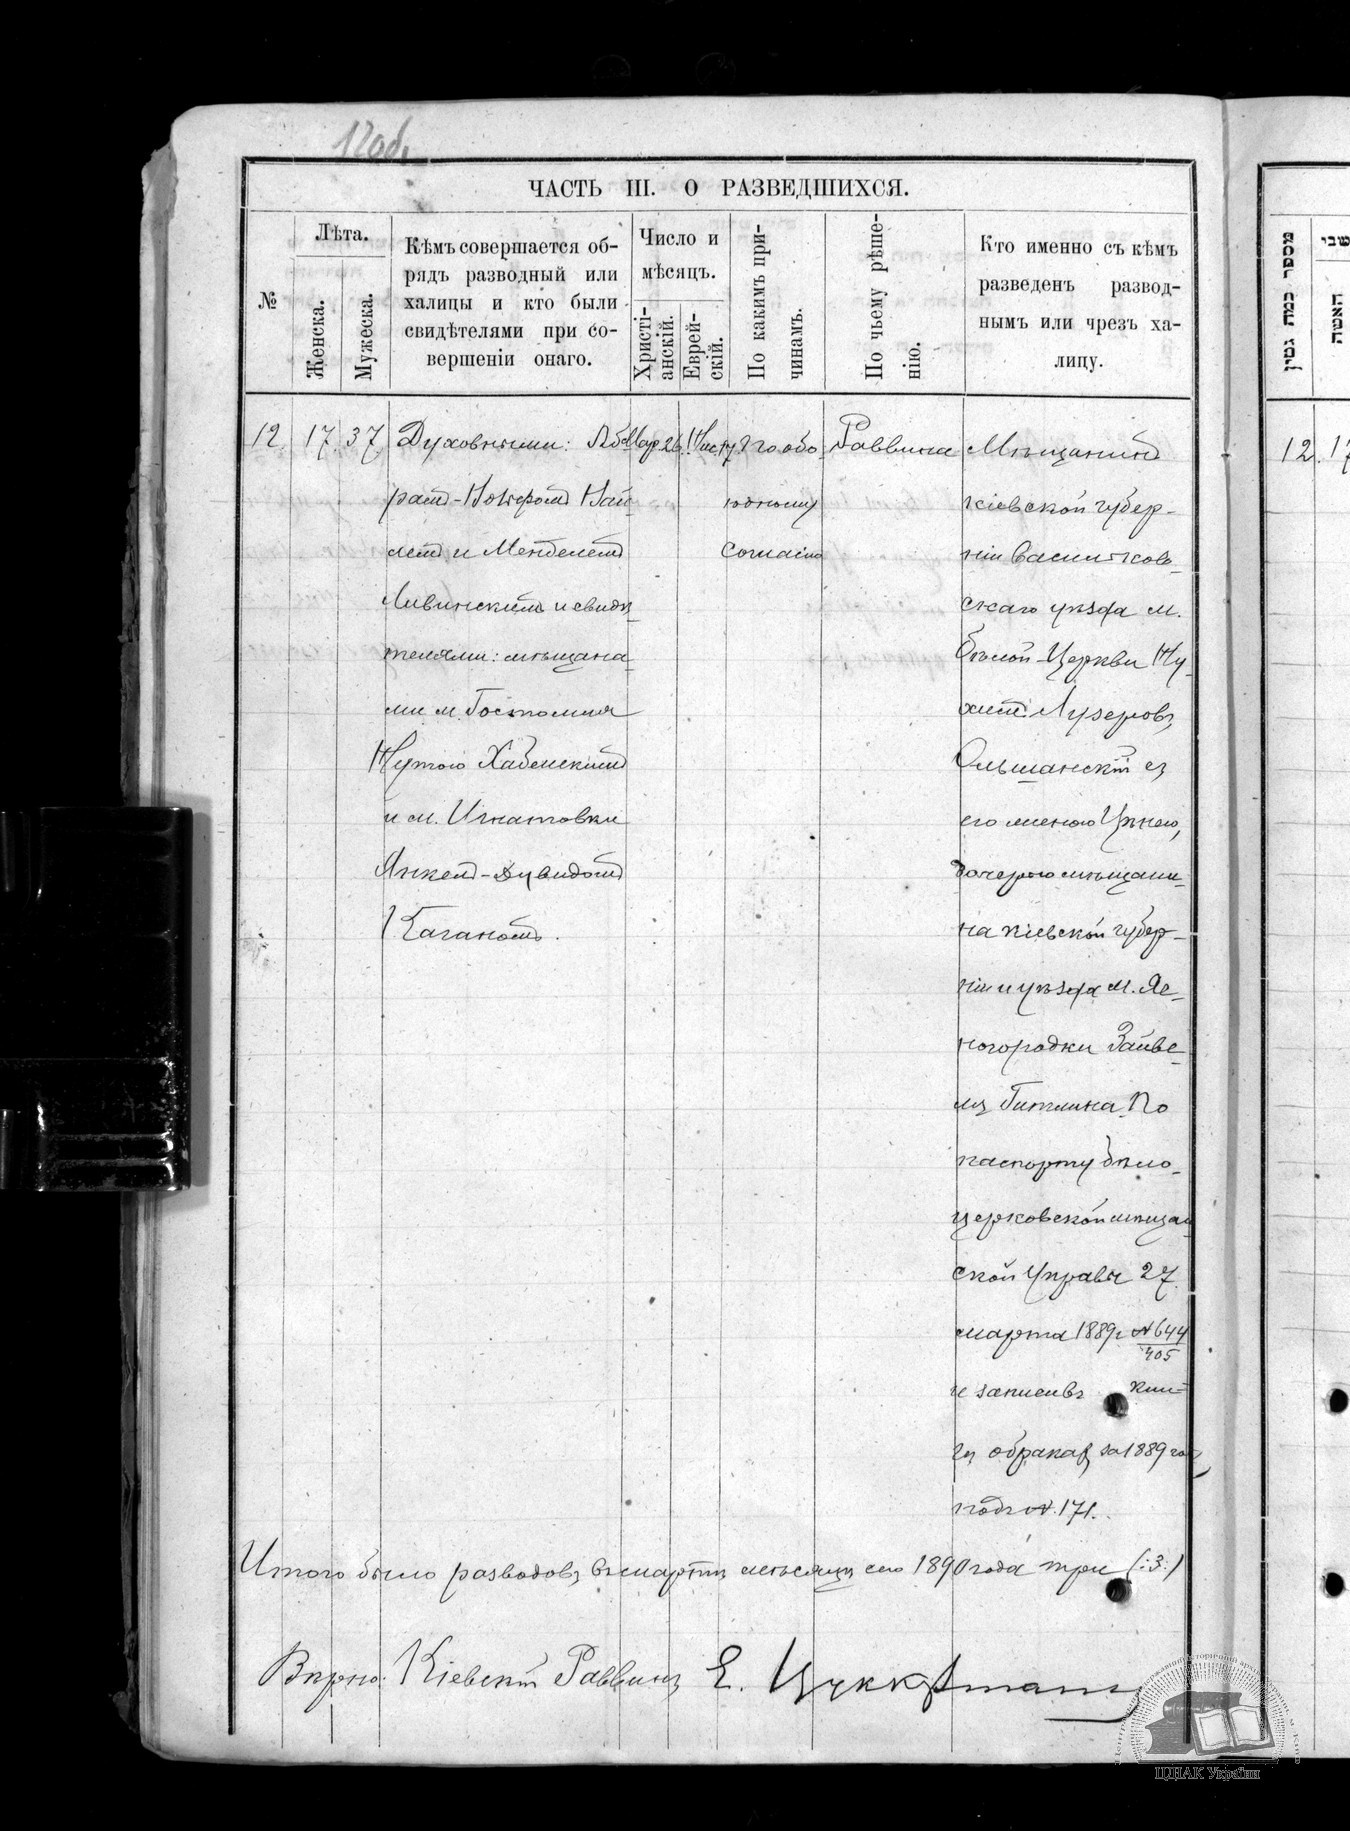 12 об.
ЧАСТЬ III. О РАЗВЕДШИХСЯ.
№
Лѣта.
Женска.
Мужеска.
Кѣмъ совершается об-
рядъ разводный или
халицы и кто были
свидѣтелями при со-
вершеніи онаго.
Число и
мѣсяцъ.
Христі-
анскій.
Еврей-
скій.
По какимъ при-
чинамъ.
По чьему рѣше-
нію.
Кто именно съ кѣмъ
разведенъ развод-
нымъ или чрезъ ха-
лицу.
12. 17. 37
Духовными: Аб-
рамъ-
и Менделемъ
Ливинскимъ и свидѣ-
телями: мѣщана-
ми м. Гостомля
Нутою Хабенскимъ
и м. Игнатовки
Янкель-Дувидомъ
Каганомъ.
Мар. 26.
Нис. 17
По обо-
юдному
согласію
Раввина
Мѣщанинъ
Кіевской губер-
ніи Васильков-
скаго уѣзда м.
Бѣлой-Церкви Ну-
химъ Лузеровъ
Ольшанскій съ
его женою
дочерью мѣщани-
на Кіевской губер-
ніи и уѣзда м. Яс-
ногородки Зайве-
ля Гитлина. По
паспорту Бѣло-
церковской мѣщан
ской Управы 27
марта 1889 г № 644
405
и записи въ кни-
гѣ о бракахъ за 1889 годъ
подъ № 171.
Итого было разводовъ въ мартѣ мѣсяцѣ сего 1890 года три (:3:)
Вѣрно: Кіевскій Раввинъ Е. Цуккерманъ
מספר כמה גטין
שני
האשה
12. 17
ЦДІАК України